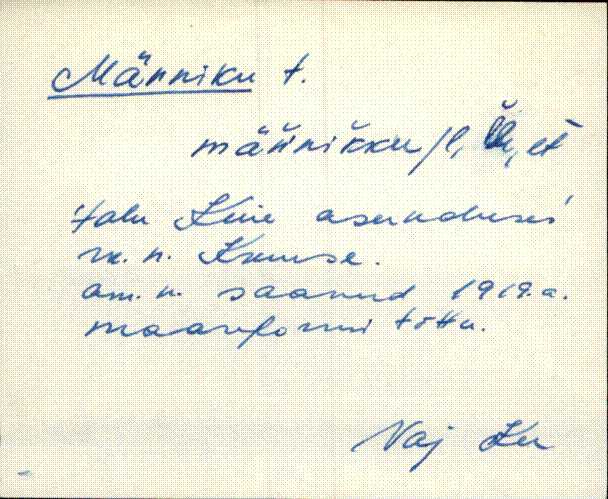 Männiku t.
männikku /l, et
Talu Kiie asenduses
rk. n. Kruuse.
am. n. saanud 1919. a.
maareformi tõttu.
Vaj Ku